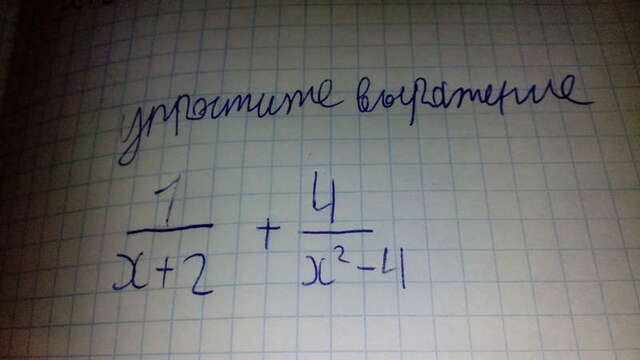 упростите выражение
1/(x+2) + 4/(x²-4)